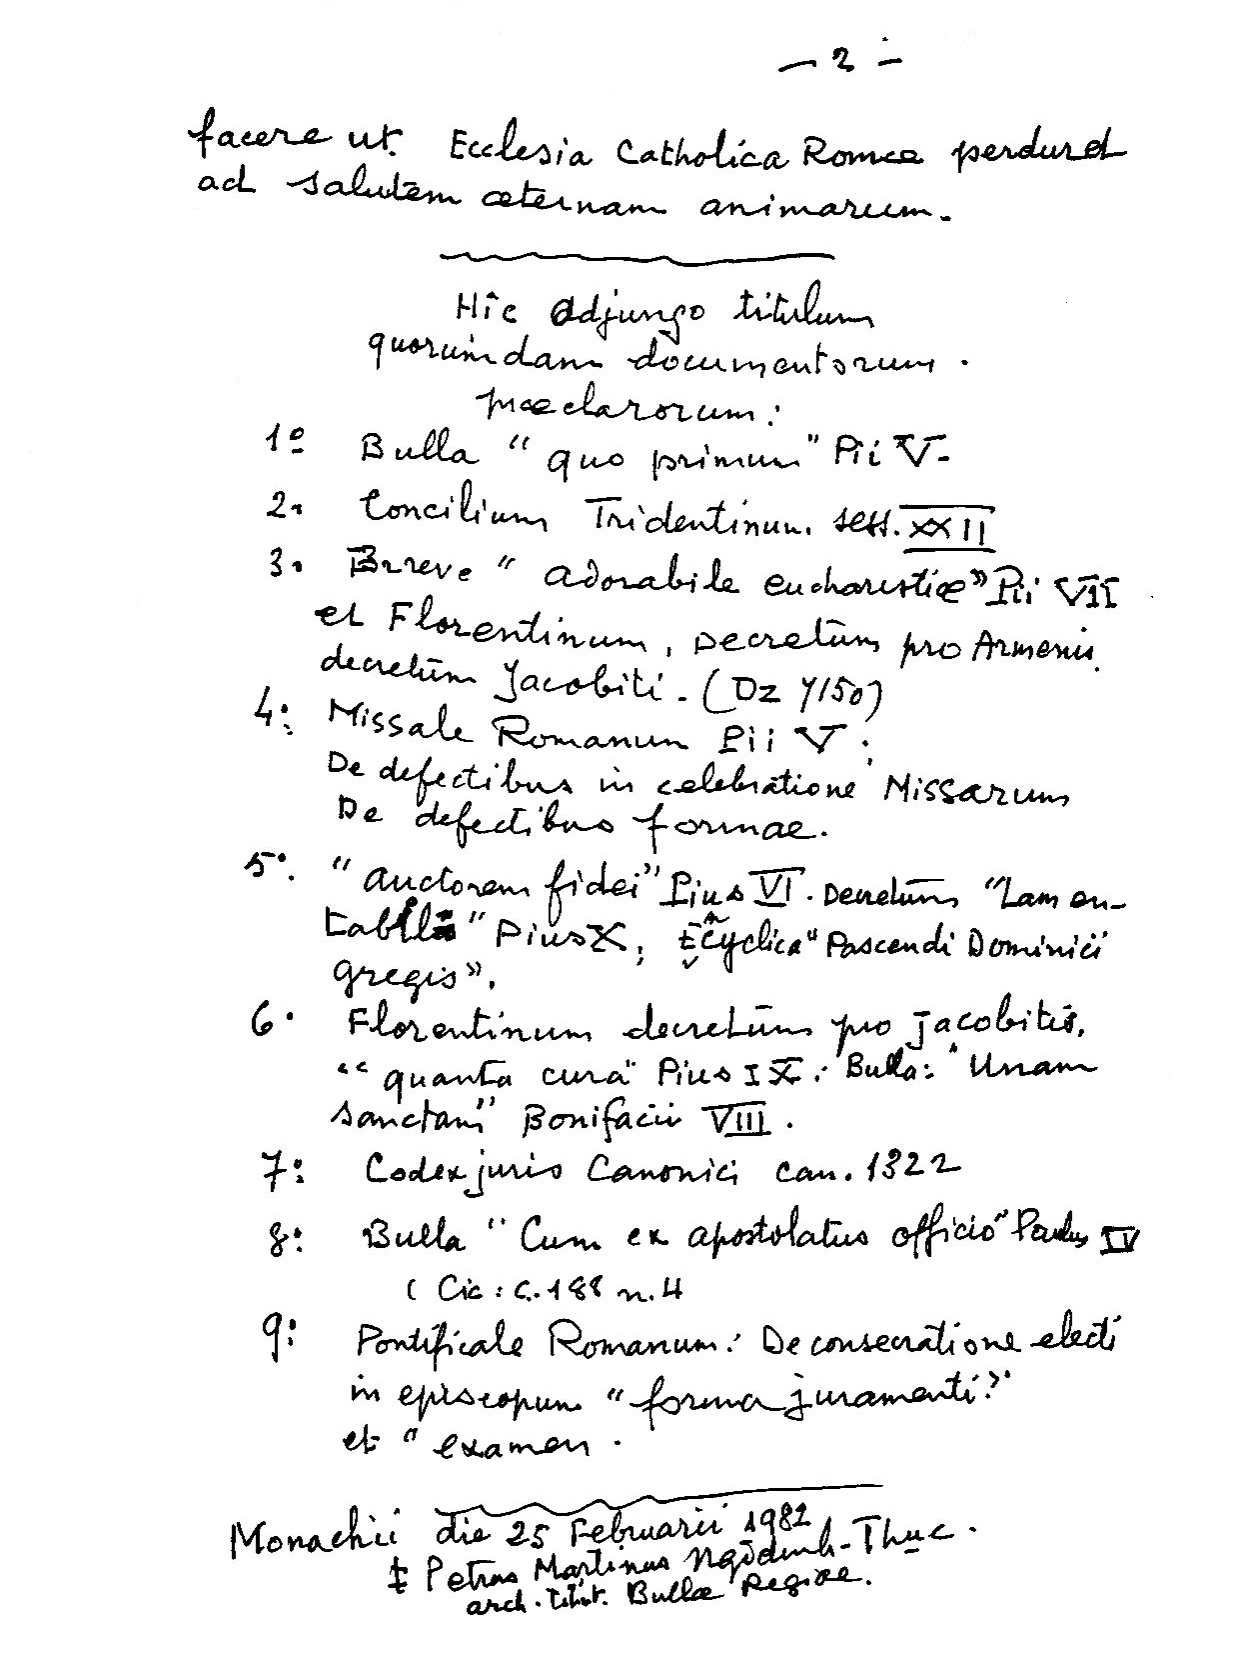 — 2 —
facere ut Ecclesia Catholica Romæ perduret
ad salutem æternam animarum.
Hic adjungo titulum
quorumdam documentorum
præclarorum:
1º Bulla "quo primum" Pii V-
2. Concilium Tridentinum. sess. XXII
3. Breve "adorabile eucharistiæ" Pii VII
et Florentinum, Decretūm pro Armenis,
decretūm Jacobiti. (Dz 7150)
4: Missale Romanum Pii V.
De defectibus in celebratione Missarum
De defectibus formae.
5º. "auctorem fidei" Pius VI. Decretūm "Lamen-
tabili" Pius X; Ecyclica "Pascendi Dominici
gregis".
6. Florentinum decretūm pro jacobitis,
"quanta cura" Pius IX. Bulla: "Unam
sanctam" Bonifacii VIII.
7: Codex juris Canonici can. 1322
8: Bulla "Cum ex apostolatus officio" Paulus IV
( Cic: c. 188 n. 4
9: Pontificale Romanum: De consecratione electi
in episcopum "forma juramenti"
et "examen.
Monachii die 25 Februarii 1982
‡ Petrus Martinus Ngôdinh-Thuc.
arch. titul. Bullæ Regiae.